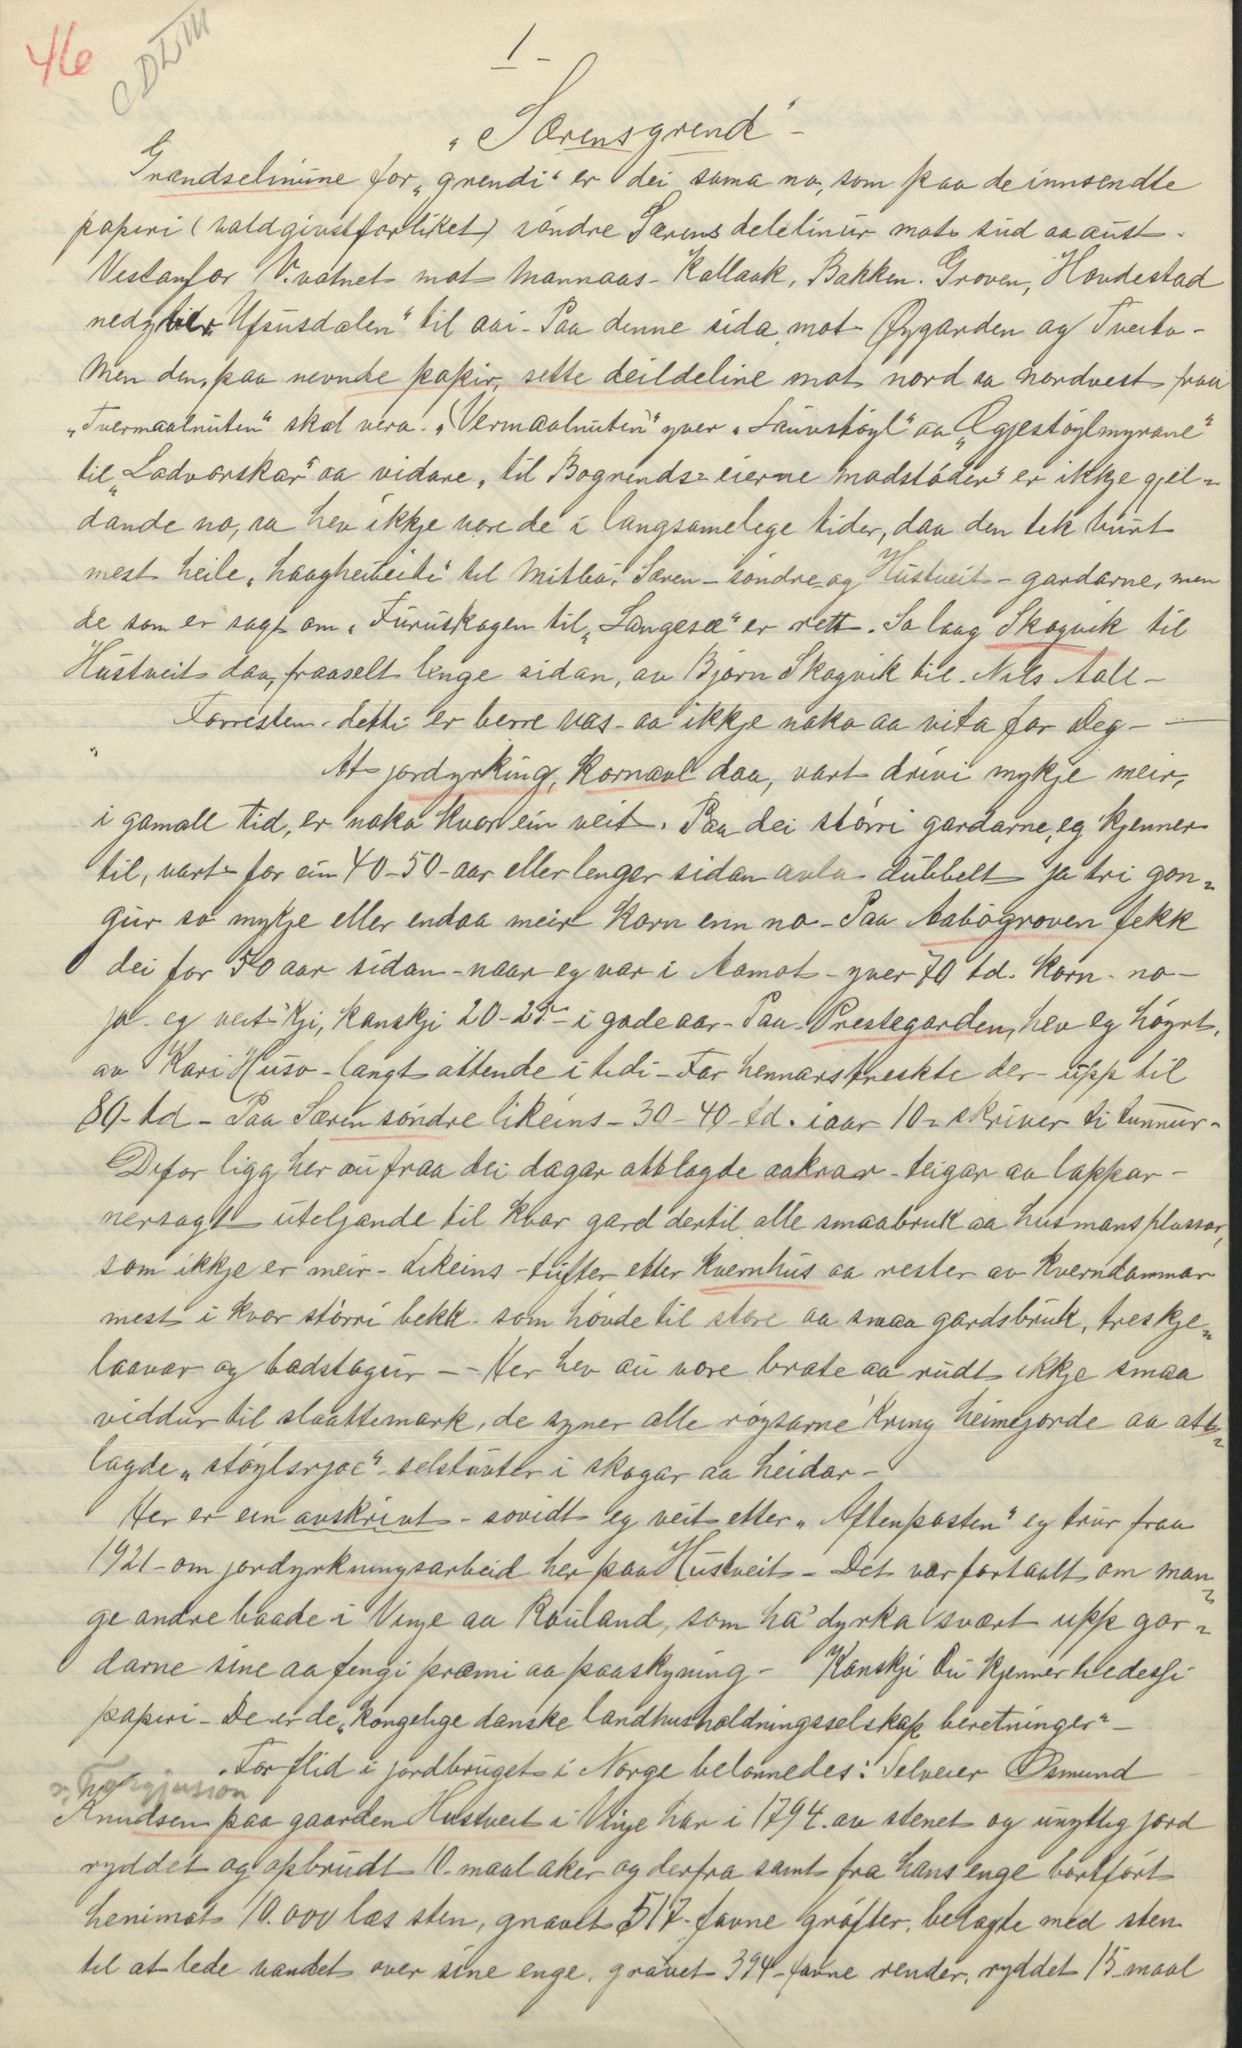 46
CDLIII
- 1 -
„Særensgrend" -
Grændselinune for „grendi" er dei sama no, som paa de innsendte
papiri (valdgivstforliket) söndre Særens delelinur mot sud aa aust.
Vestanfor V.vatnet mot Mannaas - Kallaak, Bakken. Groven, Hovdestad
ned til „Ufsusdalen" til aai - Paa denne sida mot Öygarden og Tveito -
Men den, paa nevnde papir, sette deildeline mot nord aa nordvest fraa
„Tvermaalnuten" skal vera. „Vermaalnuten" yver „Lauvstöyl" aa „Ögjestöylmyrane"
til „Ladvarskar" aa vidare, til Bogrends-eierne madstöder" er ikkje gjel-
dande no, aa hev ikkje vore de i langsamelege tider, daa den tek burt
mest heile „haagheibeite" til Mitbö, Særen - söndre og Hustveit - gardarne, men
de som er sagt om „Furuskogen til „Langesæ" er rett. So laag Skogvik til
Hustveit daa, fraaselt lenge sidan, av Björn Skogvik til Nils Aall -
Forresten - detti er berre vas - aa ikkje noko aa vita for Deg - -
" At jordyrking, Kornavl daa, vart drivi mykje meir,
i gamall tid, er noko kvar ein veit. Paa dei störri gardarne, eg kjenner
til, vart for ein 40-50-aar eller lenger sidan avla dubbelt ja tri gon-
gur so mykje eller endaa meir korn enn no - Paa Aabögroven fekk
dei for 50 aar sidan - naar eg var i Aamot - yver 70 td. korn - no -
ja - eg veit 'kji, kanskji 20-25 - i gode aar - Paa Prestegarden, hev eg höyrt,
av Kari Huso - langt attende i tidi - Far hennars treskte der - upp til
80-td - Paa Særen söndre likeins - 30-40-td. i aar 10 - skriver ti tunnur -
Difor ligg her au fraa dei dagar attlagde aakrar - teigar aa lappar -
nersagt uteljande til kvar gard dertil alle smaabruk aa husmansplassar,
som ikkje er meir - Likeins - tufter etter kvernhus aa rester av kverndammar
mest i kvar störri bekk - som hövde til store aa smaa gardsbruk, treskje-
laavar og badstogur - - Her hev au vore brote aa rudt ikkje smaa
viddur til slaattemark, de syner alle röysarne 'kring heimejorde aa att-
lagde „stöylsrjoe" - selstuvter i skogar aa heidar -
Her er ein avskrivt - sovidt eg veit etter „Aftenposten" eg trur fraa
1921 - om jordyrkningsarbeid her paa Hustveit - Det var fortaalt om man-
ge andre baade i Vinje aa Rauland, som ha' dyrka svært upp gar-
darne sine aa fengi præmi aa paaskyning - Kanskji Du kjenner til dessi
papiri - De er de „kongelige danske landhusholdningsselskap beretninger" -
„For flid i jordbruget i Norge belönnedes: Selveier Osmund
Torgjusson
Knudsen paa gaarden Hustveit i Vinje har i 1794. av stenet og unyttig jord
ryddet og opbrudt 10. maal aker og derfra samt fra hans enge bortfört
henimot 10.000 læs sten, gravet 517 - favne gröfter, belagte med sten
til at lede vandet over sine enge, gravet 394 - favne render, ryddet 15 maal